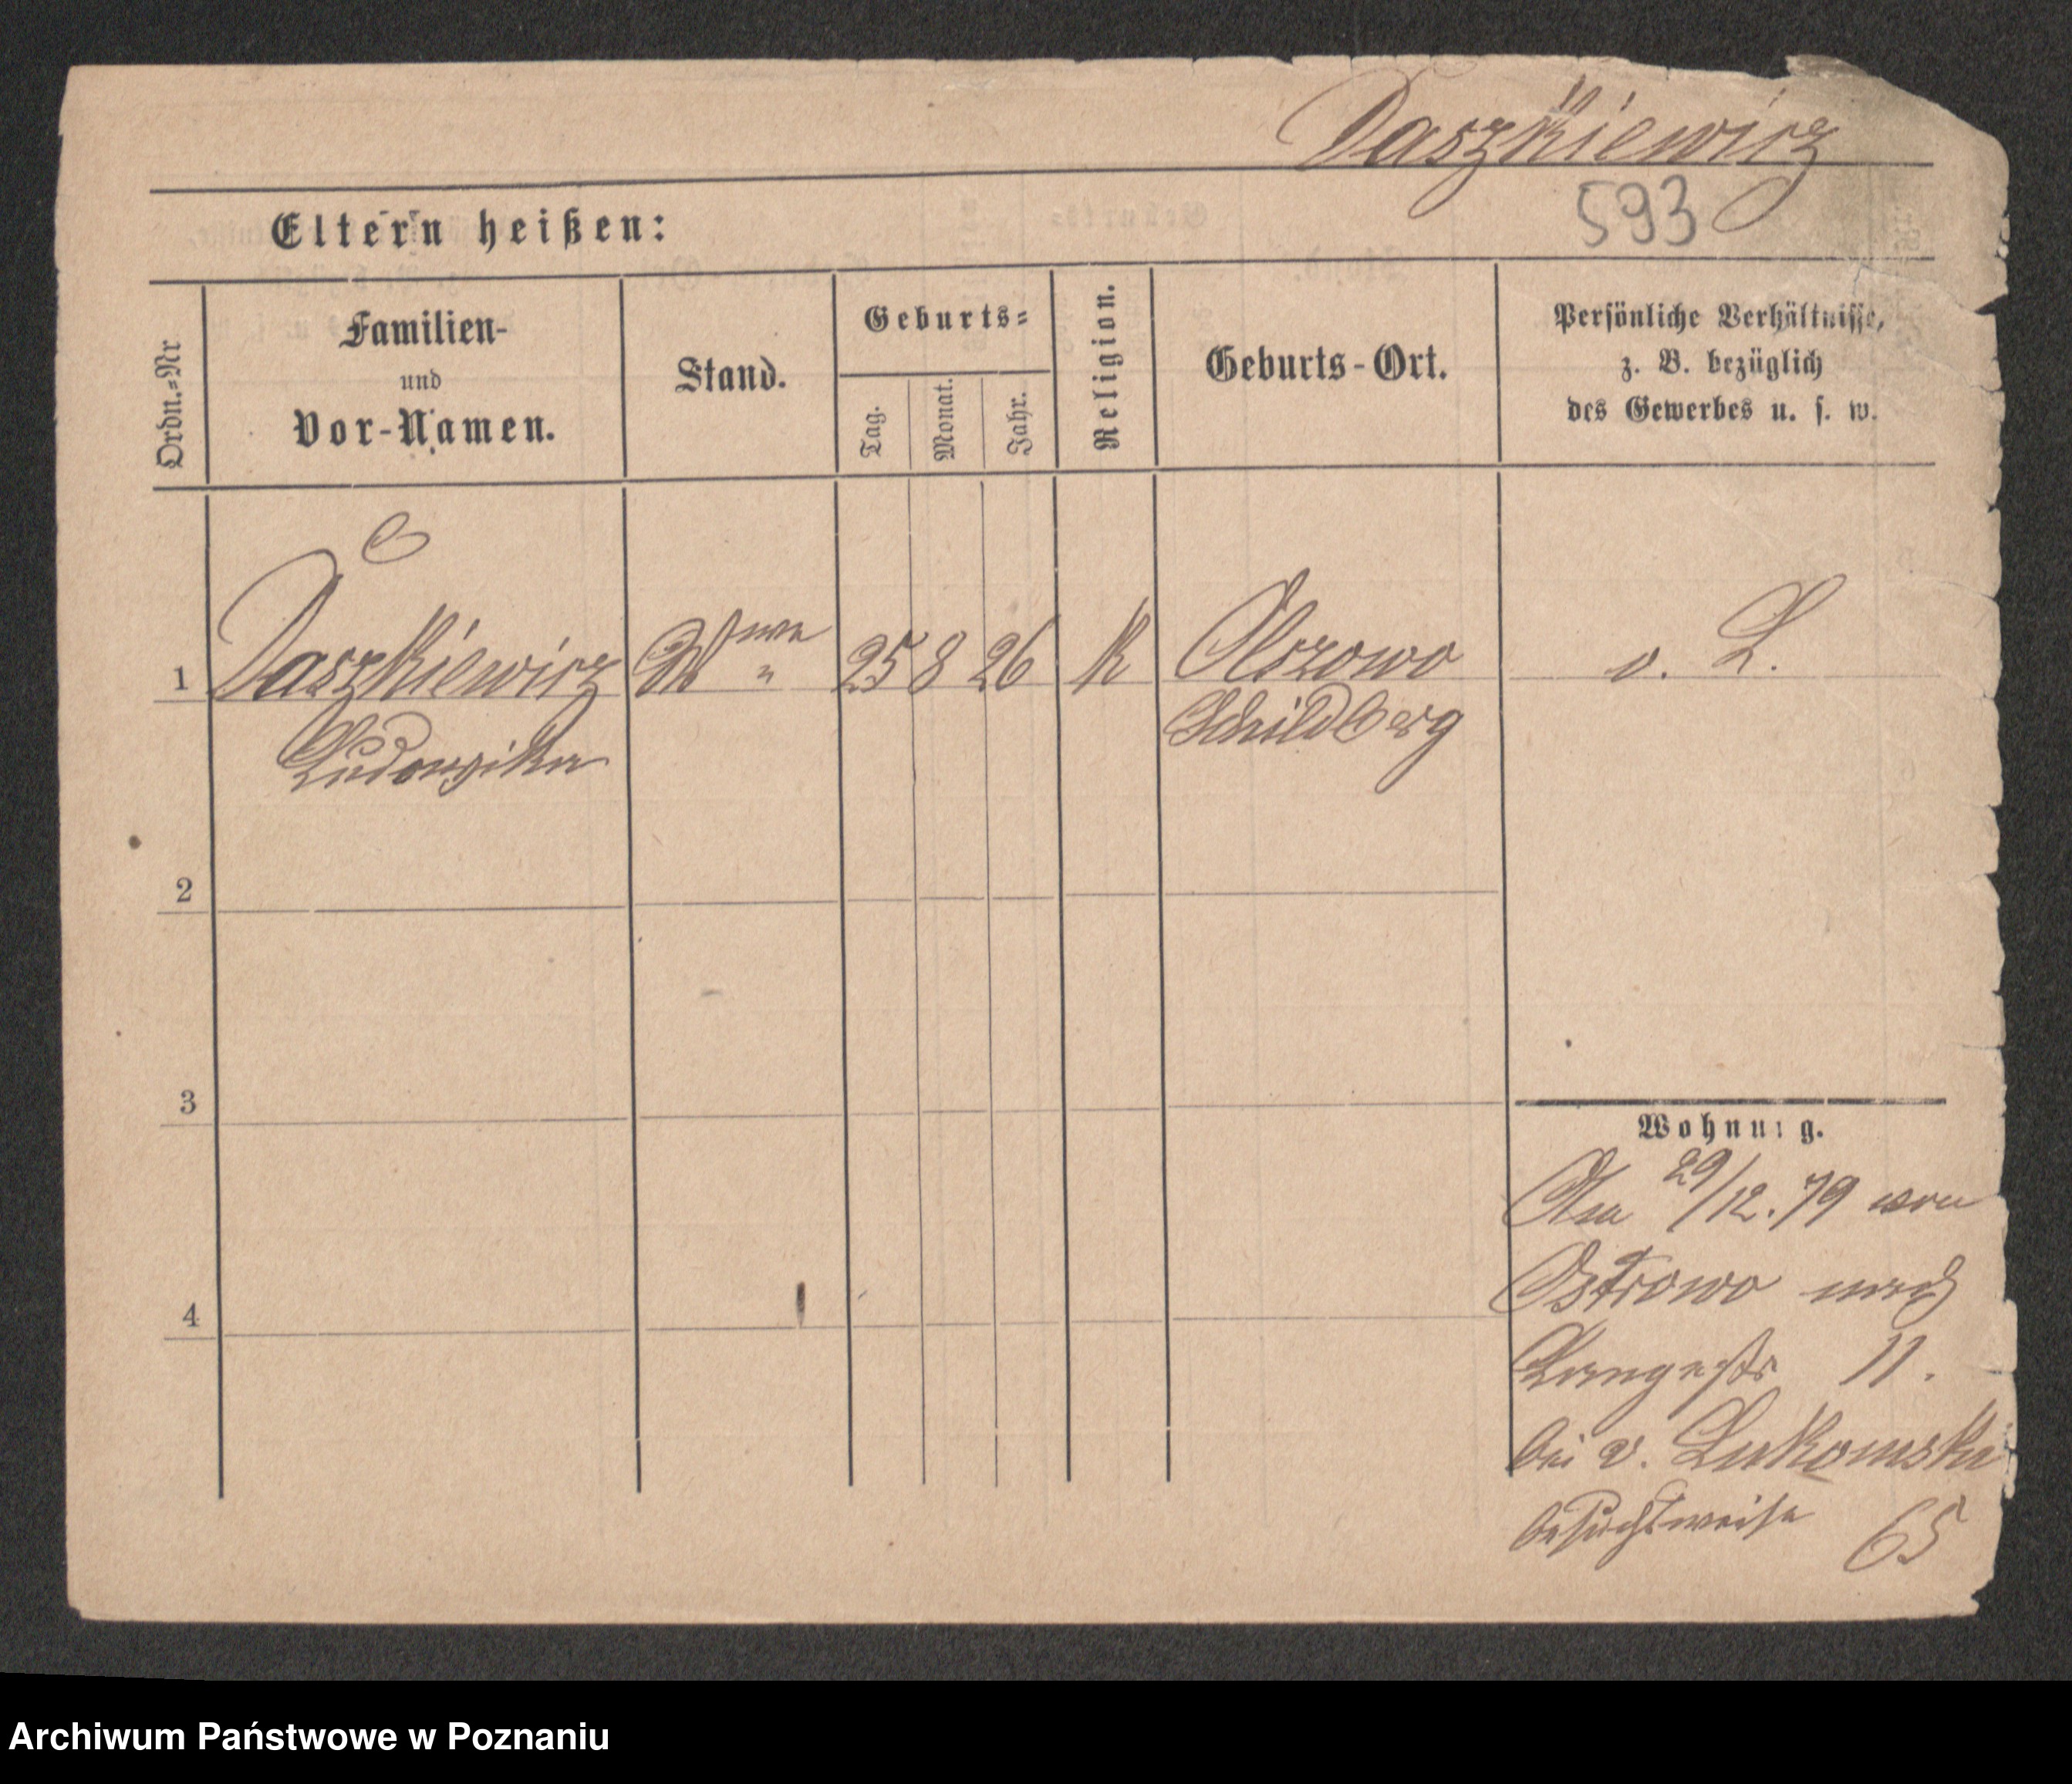 Daszkiewicz
593
Eltern heißen:
Ordn.=Nr
Familien-
und
Vor-Namen.
Stand.
Geburts=
Tag.
Monat.
Jahr.
Religion.
Geburts-Ort.
Persönliche Verhältnisse,
z. B. bezüglich
des Gewerbes u. s. w.
1 Daszkiewicz Wwe " 25 8 26 K Olszowo v. L.
Ludowika Schildberg
2
3
4
Wohnung.
Am 29/12.79 von
Ostrowo nach
Langestr 11.
bei v. Lukomska
besuchsweise 65
Archiwum Państwowe w Poznaniu